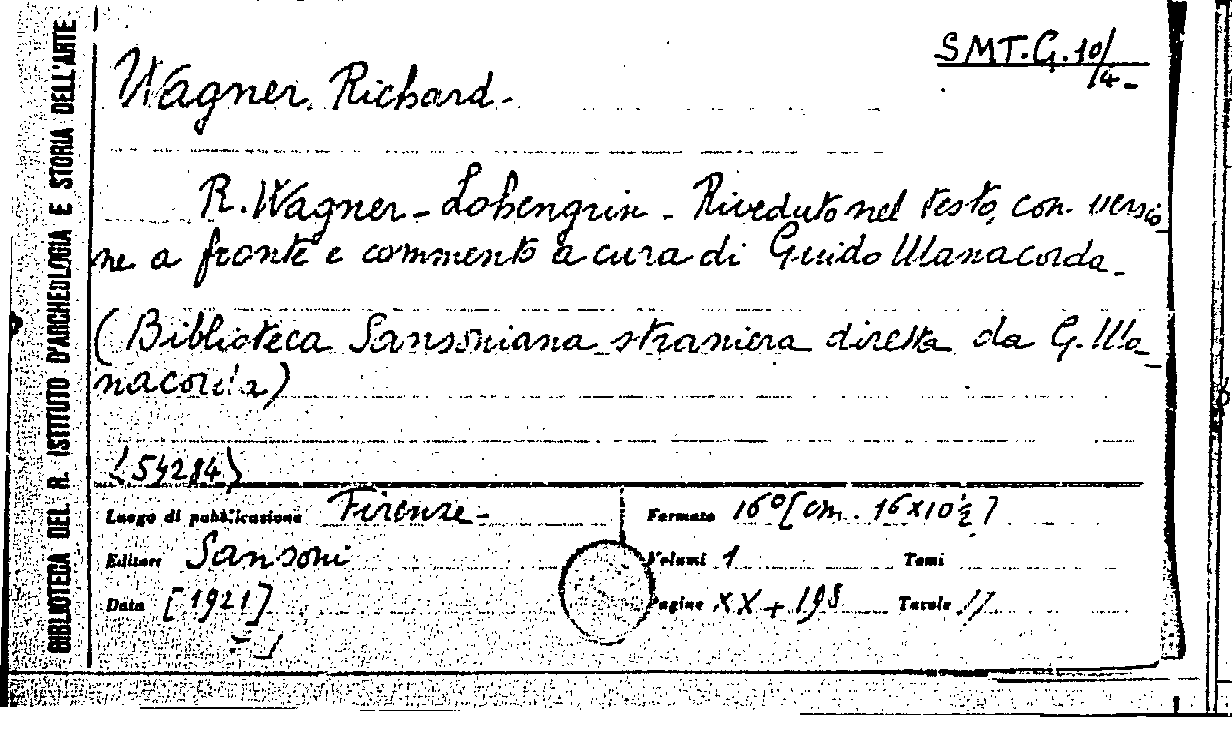 BIBLIOTECA DEL R. ISTITUTO D'ARCHEOLOGIA E STORIA DELL'ARTE
SMT.G.10/
14-
Wagner Richard-
R. Wagner - Lohengrin - Riveduto nel testo, con versio_
ne a fronte e commento a cura di Guido Manacorda_
(Biblioteca Sansoniana straniera diretta da G. Ma_
nacorda)
(54284)
Luogo di pubblicazione Firenze-
Formato 16° [cm. 16x10½]
Editore Sansoni
Volumi 1 Tomi
Data [1921]
Pagine XX + 198 Tavole //